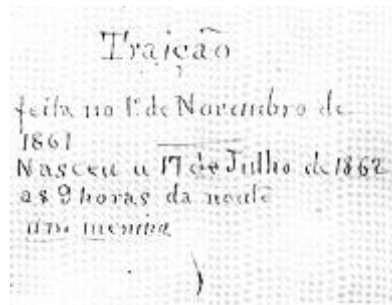 Traição
feita no 1º de Novembro de
1861
Nasceu a 17 de Julho de 1862
as 9 horas da noute
uma menina